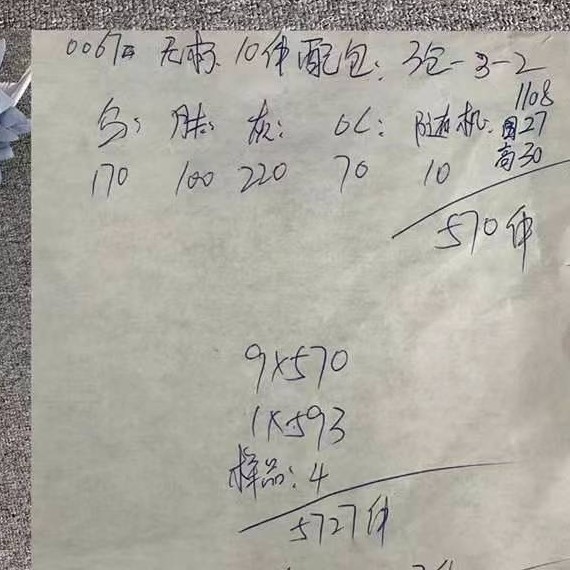 0067# 无标 10件配包: 3包-3-2
1108
乌: 肤: 灰: DC: 随机: 圆27
高30
170 100 220 70 10
570件
9X570
1X593
样品: 4
5727件